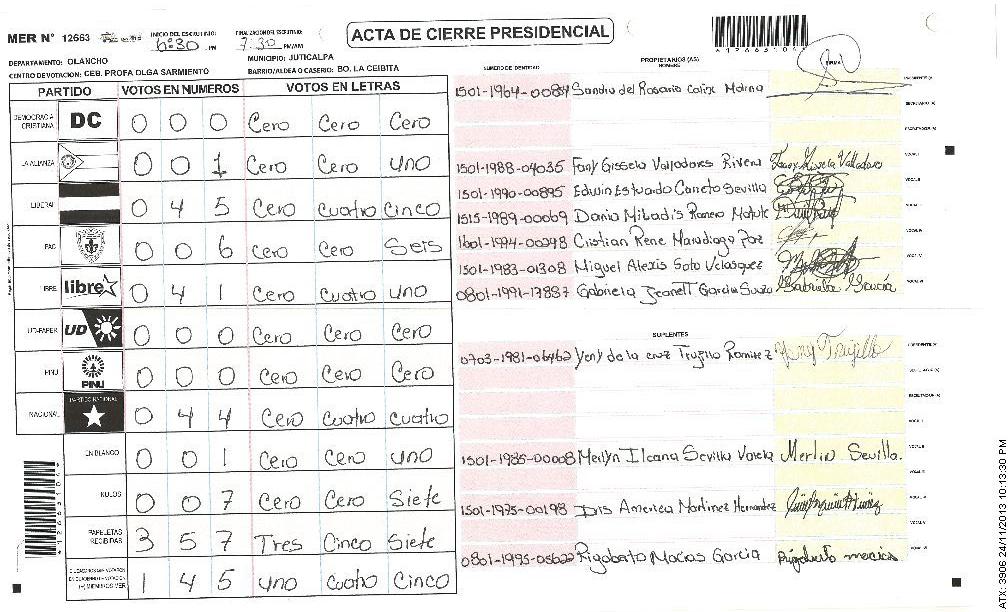 MER N° 12663
INICIO DEL ESCRUTINIO: 6:30 PM
FINALIZACION DEL ESCRUTINIO: 7:30 PM/AM
ACTA DE CIERRE PRESIDENCIAL
DEPARTAMENTO: OLANCHO
MUNICIPIO: JUTICALPA
CENTRO DE VOTACION: CEB. PROFA OLGA SARMIENTO
BARRIO/ALDEA O CASERIO: BO. LA CEIBITA
PARTIDO VOTOS EN NUMEROS VOTOS EN LETRAS
DEMOCRACIA CRISTIANA DC 0 0 0 Cero Cero Cero
LA ALIANZA 0 0 1 Cero Cero uno
LIBERAL 0 4 5 Cero Cuatro Cinco
PAC 0 0 6 Cero Cero Seis
LIBRE libre 0 4 1 Cero Cuatro uno
UD-FAPER UD 0 0 0 Cero Cero Cero
PINU PINU 0 0 0 Cero Cero Cero
NACIONAL PARTIDO NACIONAL 0 4 4 Cero Cuatro cuatro
EN BLANCO 0 0 1 Cero Cero uno
NULOS 0 0 7 Cero Cero Siete
PAPELETAS RECIBIDAS 3 5 7 Tres Cinco Siete
1 4 5 uno Cuatro Cinco
NUMERO DE IDENTIDAD
PROPIETARIOS (AS)
NOMBRE
FIRMA
1501-1964-0084 Sandra del Rosario Calix Molina
PRESIDENTE (A)
SECRETARIO (A)
ESCRUTADOR (A)
1501-1988-04035 Fany Gissela Valladares Rivera
VOCAL I
1501-1990-00895 Edwin Estuardo Canelo Sevilla
VOCAL II
1515-1989-00069
VOCAL III
1601-1994-00298 Cristian Rene
VOCAL IV
1501-1983-01308 Miguel Alexis Soto Velasquez
VOCAL V
0801-1991-17837 Gabriela Jeanett Garcia Gabriela Garcia
SUPLENTES
0703-1981-06462 Yeny de la cruz Trujillo Ramirez Yeny Trujillo
PRESIDENTE (A)
SECRETARIO (A)
ESCRUTADOR (A)
VOCAL I
1501-1985-00008 Merlyn Ileana Sevilla Varela Merlin Sevilla.
VOCAL II
VOCAL III
1501-1975-00198 Iris America Martinez Hernandez
VOCAL IV
VOCAL V
0801-1995-05622 Rigoberto Macias Garcia Rigoberto macias
ATX: 3906 24/11/2013 10:13:30 PM